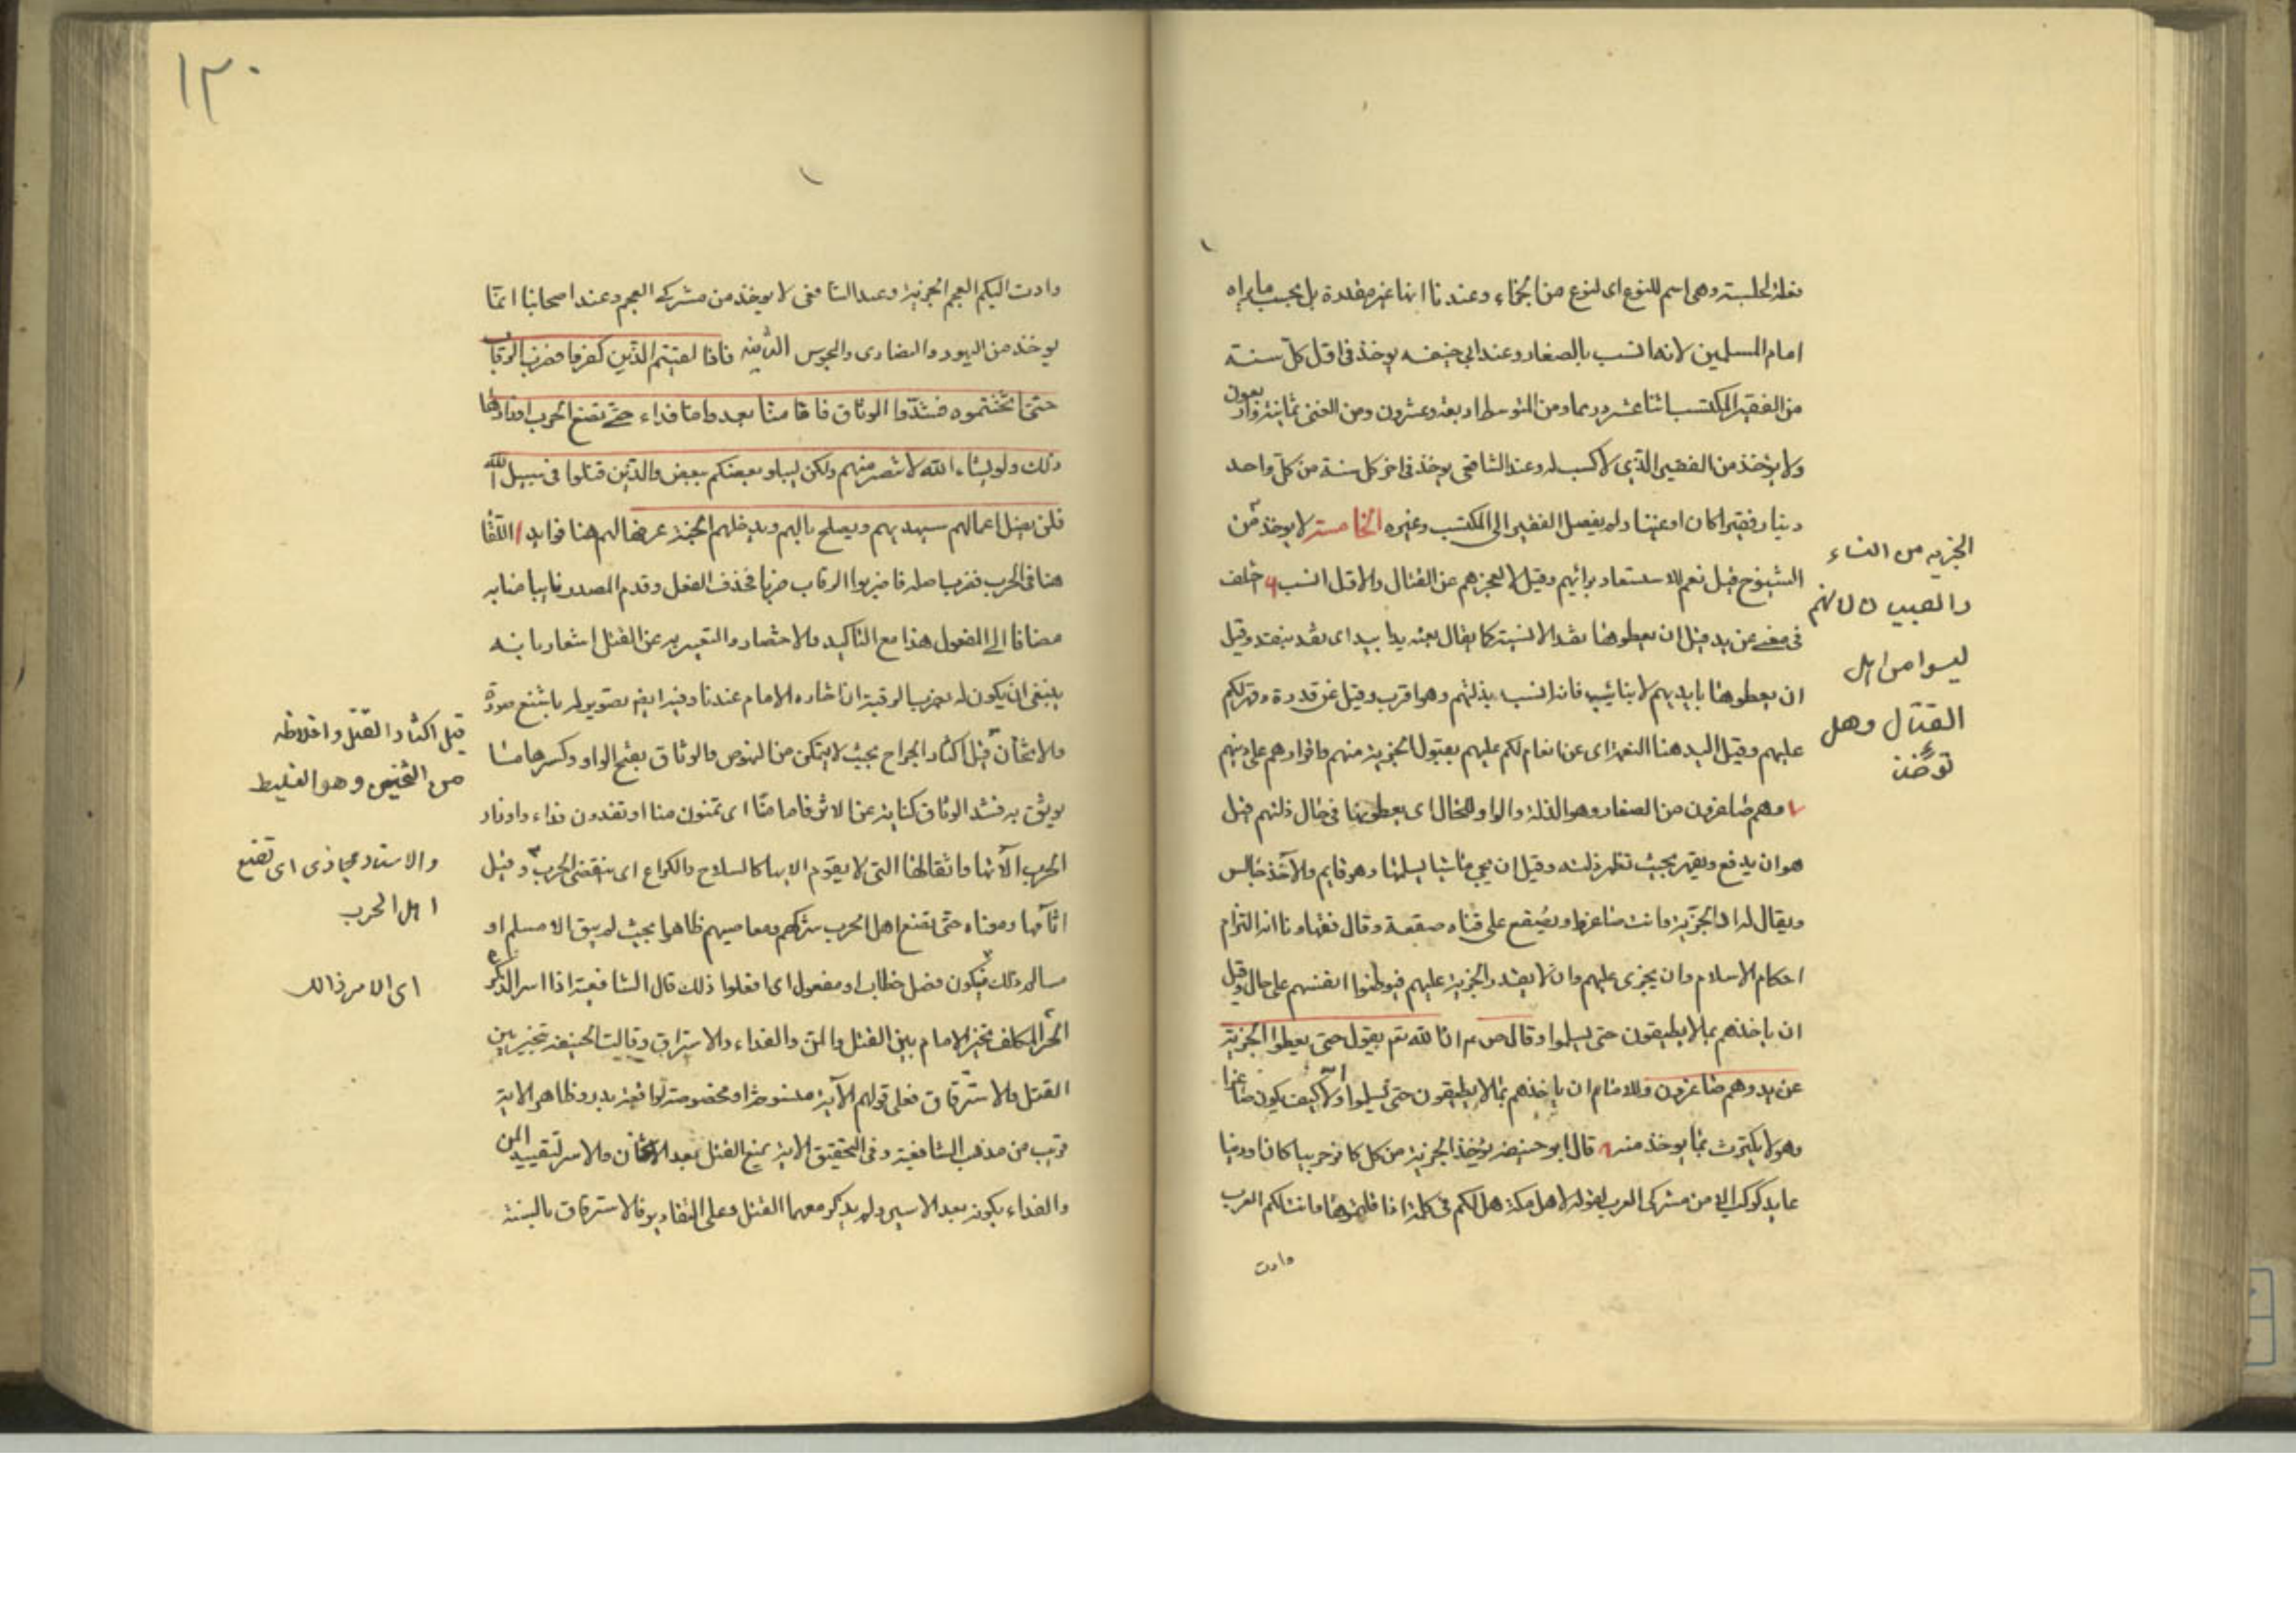 فعلة كالجلسة وهى اسم للنوع اى لنوع من الجزاء وعندنا انها غير مقدرة بل بحسب ما يراه
امام المسلمين لانها انسب بالصغار وعند ابى حنيفه يوخذ فى اول كل سنة
من الفقير المكتسب اثنا عشر درهما ومن المتوسط اربعة وعشرون ومن الغنى ثمانية واربعون
ولا يؤخذ من الفقير الذى لا كسب له وعند الشافعى يوخذ فى اخر كل سنة من كل واحد
دينار فقيرا كان او غنيا ولم يفصل الفقير الى المكتسب وغيره الخامسة لا يوخذ من
الشيوخ قيل نعم للاستعاد برائهم وقيل لا لعجزهم عن القتال والاول انسب واختلف
فى معنى عن يد قيل ان يعطوها نقدا لا نسيئة كما يقال بعته يدا بيد اى نقد بنقد وقيل
ان يعطوها بايديهم لا بنائب فانه انسب بذلتهم وهو اقرب وقيل عن قدرة وقهر لكم
عليهم وقيل اليد هنا النعمة اى عن انعام لكم عليهم بقبول الجزية منهم واقرارهم على دينهم
وهم صاغرون من الصغار وهو الذلة والواو للحال اى يعطونها فى حال ذلتهم قيل
هو ان يدفع ويقهر بحيث تظهر ذلته وقيل ان يجى ماشيا يسلمها وهو قايم والاخذ جالس
ويقال له اد الجزية وانت صاغر ويصفع على قفاه صفعة وقال فقهاونا انه التزام
احكام الاسلام وان يجرى عليهم وان لا يقدر الجزية عليهم فيوطنوا انفسهم على حال وقيل
ان ياخذهم بما لا يطيقون حتى يسلموا وقال ص م ان الله تع يقول حتى يعطوا الجزية
عن يد وهم صاغرون وللامام ان ياخذهم بما لا يطيقون حتى يسلموا والا كيف يكون صاغرا
وهو لا يكترث بما يوخذ منه قال ابو حنيفه يؤخذ الجزية من كل كافر حربيا كان او دينيا
عابد كوكب الا من مشركى العرب لقوله لاهل مكة هل لكم فى كلمة اذا قلتموها دانت لكم العرب
وادت
الجزيه من النساء
والصبيان لا لانهم
ليسوا من اهل
القتال وهل
تؤخذ
١٣٠
وادت اليكم العجم الجزية وعند الشافعى لا يوخذ من مشركى العجم وعند اصحابنا انما
يوخذ من اليهود والنصارى والمجوس الثامنه فاذا لقيتم الذين كفروا فضرب الرقاب
حتى اذا اثخنتموهم فشدوا الوثاق فاما منا بعد واما فداء حتى تضع الحرب اوزارها
ذلك ولو يشاء الله لانتصر منهم ولكن ليبلو بعضكم ببعض والذين قتلوا فى سبيل الله
فلن يضل اعمالهم سيهديهم ويصلح بالهم ويدخلهم الجنة عرفها لهم هنا فوايد ا اللقا
هنا فى الحرب فضرب اصله فاضربوا الرقاب ضربا فحذف الفعل وقدم المصدر فانيب منابه
مضافا الى المفعول هذا مع التاكيد والاختصار والتعبير به عن القتل اشعار بانه
ينبغى ان يكون له بضرب الرقبة ان اختاره الامام عندنا وفيه ايضا تصوير له باشنع صورة
والاثخان قيل اكثار الجراح بحيث لا يتمكن من النهوض والوثاق بفتح الواو وكسرها ما
يوثق به فشد الوثاق كناية عن الاسر فاما منا اى تمنون منا او تفدون فداء واوزار
الحرب آلاتها واثقالها التى لا يقوم الا بها كالسلاح والكراع اى ينقضى الحرب وقيل
اثامها ومعناه حتى تضع اهل الحرب شركهم ومعاصيهم ظاهرا بحيث لم يبق الا مسلم او
مسالم ذلك فيكون فصل خطاب او مفعول اى افعلوا ذلك قال الشافعية اذا اسر الذكر
الحر المكلف تخير الامام بين القتل والمن والفداء والاسترقاق وقالت الحنيفة تخير بين
القتل والاسترقاق فعلى قولهم الآية منسوخة او مخصوصة بواقعة بدر وظاهر الاية
قريب من مذهب الشافعية وفى التحقيق الاية تمنع القتل بعد الاثخان والاسر لتقييد المن
والفداء بكونه بعد الاسر ولم يذكر معهما القتل وعلى التقادير فالاسترقاق بالسنة
قيل اكثار القتل واغلاظه
من الثخين وهو الغليظ
والاسناد مجازى اى تضع
اهل الحرب
اى الامر ذالك